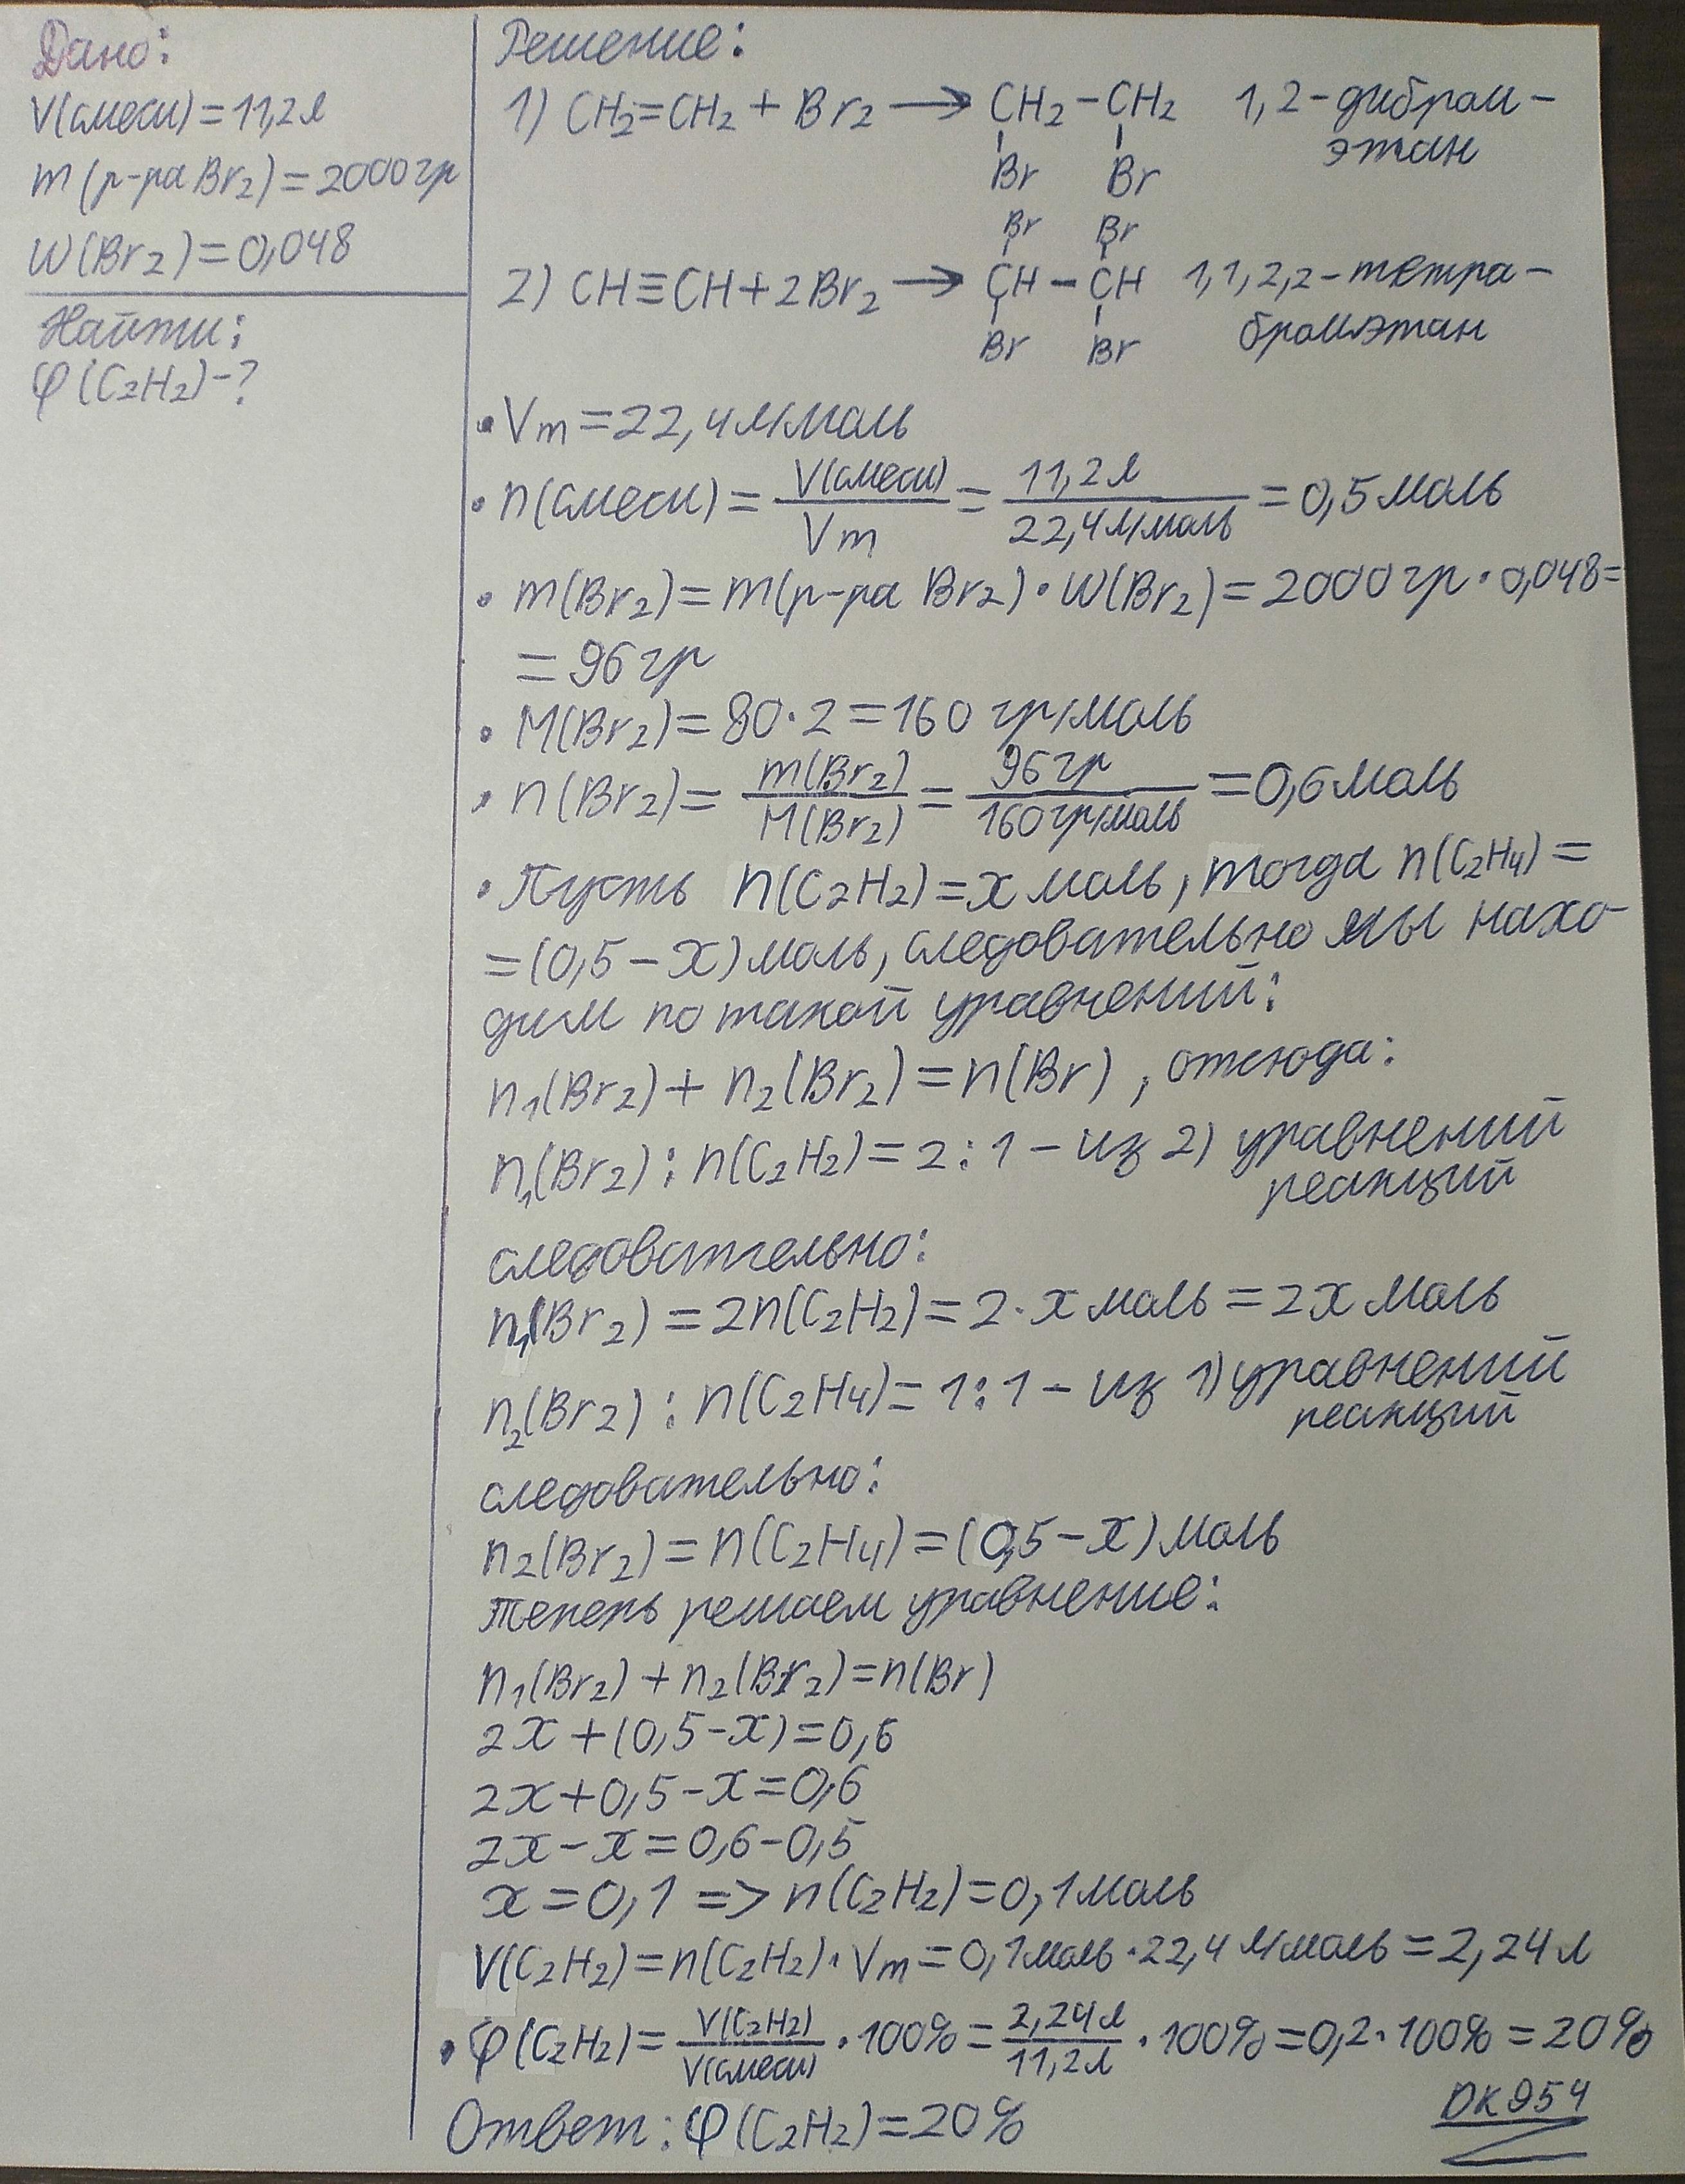 Дано:
V(смеси)=11,2л
m(р-ра Br₂)=2000гр
W(Br₂)=0,048
Найти:
φ(C₂H₂)-?
Решение:
1) CH₂=CH₂ + Br₂ → CH₂-CH₂ 1,2-дибром-
этан
Br Br
Br Br
2) CH≡CH+2Br₂ → CH-CH 1,1,2,2-тетра-
бромэтан
Br Br
• Vm=22,4л/моль
• n(смеси) = V(смеси)/Vm = 11,2л/22,4л/моль = 0,5моль
• m(Br₂)=m(р-ра Br₂)•W(Br₂)=2000гр•0,048=
=96гр
• M(Br₂)=80•2=160 гр/моль
• n(Br₂)= m(Br₂)/M(Br₂) = 96гр/160гр/моль =0,6моль
• Пусть n(C₂H₂)=x моль, тогда n(C₂H₄)=
=(0,5-x)моль, следовательно мы нахо-
дим по такой уравнений:
n₁(Br₂)+n₂(Br₂)=n(Br), отсюда:
n₁(Br₂):n(C₂H₂)=2:1-из 2) уравнений
реакций
следовательно:
n₁(Br₂)=2n(C₂H₂)=2•x моль=2x моль
n₂(Br₂):n(C₂H₄)=1:1-из 1) уравнений
реакций
следовательно:
n₂(Br₂)=n(C₂H₄)=(0,5-x)моль
теперь решаем уравнение:
n₁(Br₂)+n₂(Br₂)=n(Br)
2x+(0,5-x)=0,6
2x+0,5-x=0,6
2x-x=0,6-0,5
x=0,1 => n(C₂H₂)=0,1моль
V(C₂H₂)=n(C₂H₂)•Vm=0,1моль•22,4 л/моль=2,24л
• φ(C₂H₂)= V(C₂H₂)/V(смеси) •100%= 2,24л/11,2л •100%=0,2•100%=20%
Ответ: φ(C₂H₂)=20%
DK954